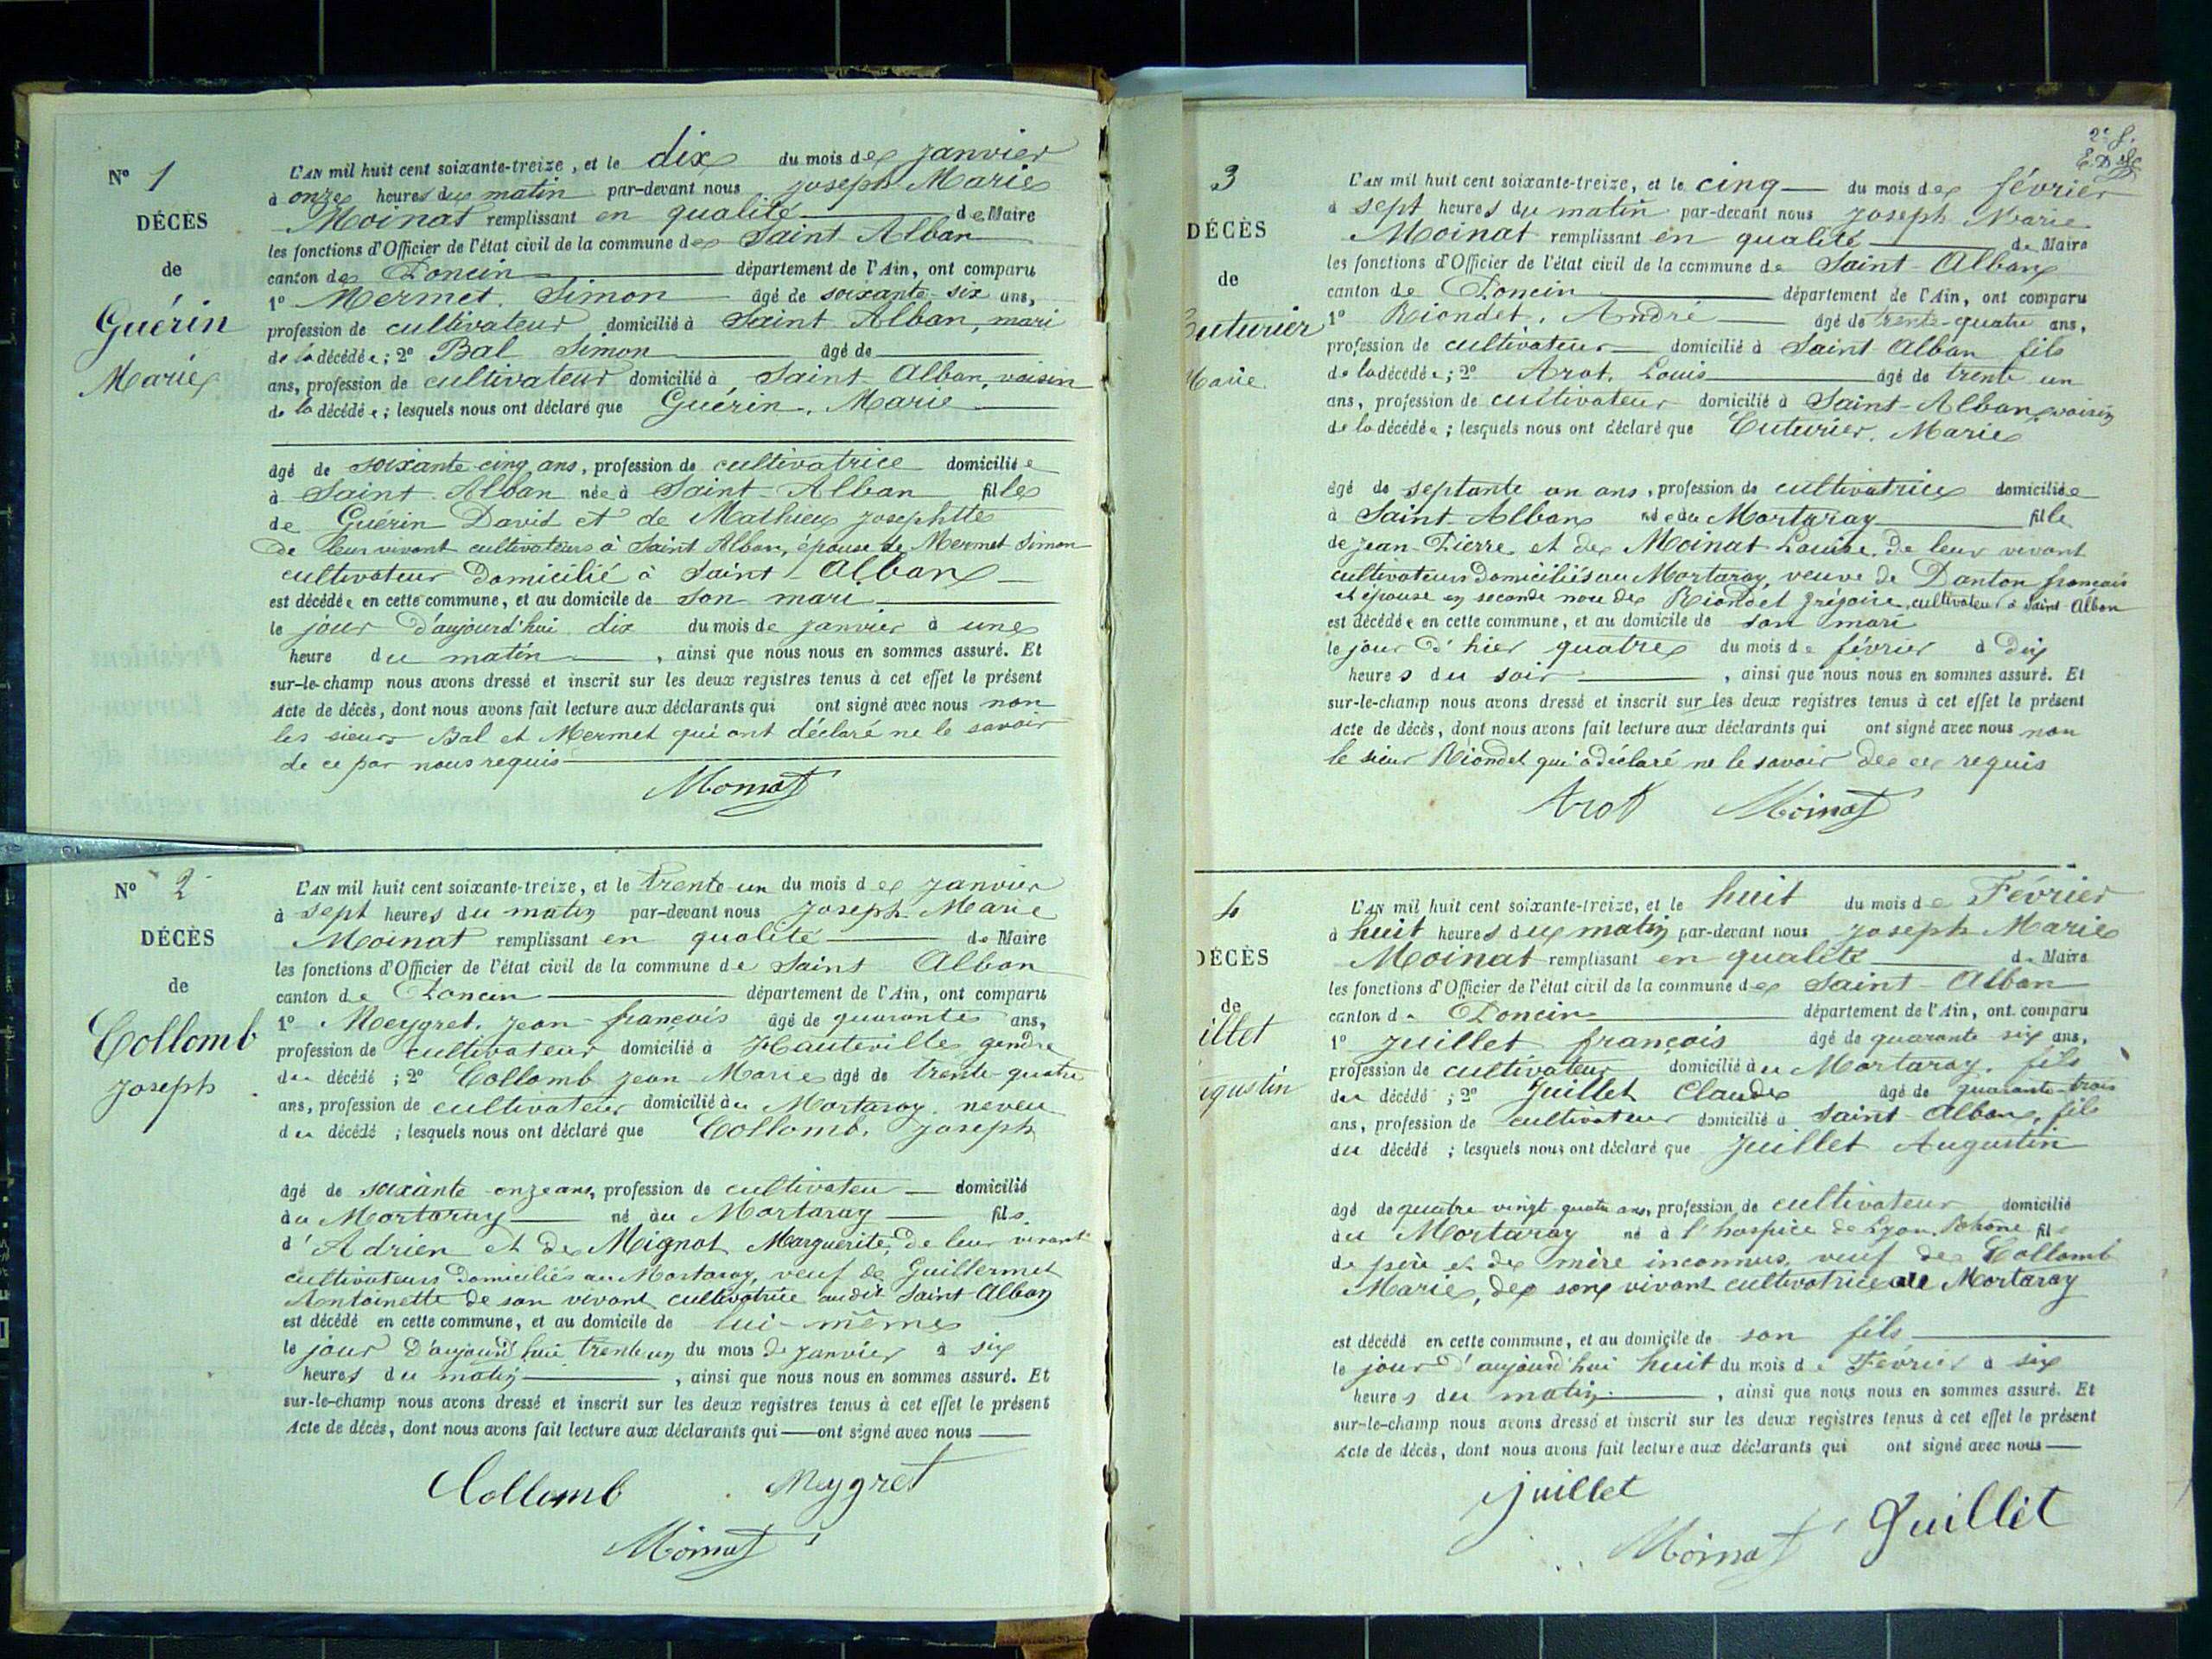 N° 1
DÉCÈS
de
Guérin
Marie
L'AN mil huit cent soixante-treize, et le dix du mois de janvier
à onze heures du matin par-devant nous Joseph Marie
Moinat remplissant en qualité de Maire
les fonctions d'Officier de l'état civil de la commune de Saint-Alban
canton de Poncin département de l'Ain, ont comparu
1° Mermet. Simon âgé de soixante-six ans,
profession de cultivateur domicilié à Saint Alban, mari
de la décédée; 2° Bal Simon âgé de
ans, profession de cultivateur domicilié à Saint-Alban, voisin
de la décédée; lesquels nous ont déclaré que Guérin. Marie
âgé de soixante cinq ans, profession de cultivatrice domiciliée
à Saint-Alban née à Saint-Alban fille
de Guérin David et de Mathieu Josephtte
de leur vivant cultivateurs à Saint Alban, épouse de Mermet Simon
cultivateur domicilié à Saint-Alban
est décédée en cette commune, et au domicile de son mari
le jour d'aujourd'hui dix du mois de janvier à une
heure du matin, ainsi que nous nous en sommes assuré. Et
sur-le-champ nous avons dressé et inscrit sur les deux registres tenus à cet effet le présent
Acte de décès, dont nous avons fait lecture aux déclarants qui ont signé avec nous non
les sieurs Bal et Mermet qui ont déclaré ne le savoir
de ce par nous requis
Moinat
N° 2
DÉCÈS
de
Collomb
Joseph
L'AN mil huit cent soixante-treize, et le trente-un du mois de janvier
à sept heures du matin par-devant nous Joseph-Marie
Moinat remplissant en qualité de Maire
les fonctions d'Officier de l'état civil de la commune de Saint Alban
canton de Poncin département de l'Ain, ont comparu
1° Meygret. Jean-françois âgé de quarante ans,
profession de cultivateur domicilié à Hauteville gendre
du décédé; 2° Collomb Jean-Marie âgé de trente-quatre
ans, profession de cultivateur domicilié au Mortaray. neveu
du décédé; lesquels nous ont déclaré que Collomb. Joseph
âgé de soixante-onze ans, profession de cultivateur domicilié
au Mortaray né au Mortaray fils
d'Adrien et de Mignot Marguerite, de leur vivant
cultivateurs domiciliés au Mortaray, veuf de Guillermet
Antoinette de son vivant cultivatrice audit Saint-Alban
est décédé en cette commune, et au domicile de lui-même
le jour d'aujourd'hui trente un du mois de janvier à six
heures du matin, ainsi que nous nous en sommes assuré. Et
sur-le-champ nous avons dressé et inscrit sur les deux registres tenus à cet effet le présent
Acte de décès, dont nous avons fait lecture aux déclarants qui ont signé avec nous
Collomb Meygret
Moinat
2e f.
3
DÉCÈS
de
Cuturier
Marie
L'AN mil huit cent soixante-treize, et le cinq du mois de février
à sept heures du matin par-devant nous Joseph Marie
Moinat remplissant en qualité de Maire
les fonctions d'Officier de l'état civil de la commune de Saint-Alban
canton de Poncin département de l'Ain, ont comparu
1° Riondet. André âgé de trente-quatre ans,
profession de cultivateur domicilié à Saint-Alban fils
de la décédée; 2° Arot. Louis âgé de trente un
ans, profession de cultivateur domicilié à Saint-Alban, voisin
de la décédée; lesquels nous ont déclaré que Cuturier. Marie
âgé de septante un ans, profession de cultivatrice domiciliée
à Saint-Alban née au Mortaray fille
de Jean-Pierre et de Moinat Louise. de leur vivant
cultivateurs domiciliés au Mortaray, veuve de Danton françois
et épouse en seconde noce de Riondet Grégoire, cultivateur à Saint-Alban
est décédée en cette commune, et au domicile de son mari
le jour d'hier quatre du mois de février à dix
heures du soir, ainsi que nous nous en sommes assuré. Et
sur-le-champ nous avons dressé et inscrit sur les deux registres tenus à cet effet le présent
Acte de décès, dont nous avons fait lecture aux déclarants qui ont signé avec nous non
le sieur Riondet qui a déclaré ne le savoir de ce requis
Arot Moinat
4
DÉCÈS
de
illet
gustin
L'AN mil huit cent soixante-treize, et le huit du mois de Février
à huit heures du matin par-devant nous Joseph Marie
Moinat remplissant en qualité de Maire
les fonctions d'Officier de l'état civil de la commune de Saint-Alban
canton de Poncin département de l'Ain, ont comparu
1° Juillet françois âgé de quarante six ans,
profession de cultivateur domicilié au Mortaray. fils
du décédé; 2° Juillet Claude âgé de quarante-trois
ans, profession de cultivateur domicilié à Saint-Alban, fils
du décédé; lesquels nous ont déclaré que Juillet Augustin
âgé de quatre vingt-quatre ans, profession de cultivateur domicilié
au Mortaray né à l'hospice de Lyon. Rhône fil
de père et de mère inconnus, veuf de Collomb
Marie, de son vivant cultivatrice au Mortaray
est décédé en cette commune, et au domicile de son fils
le jour d'aujourd'hui huit du mois de Février à six
heures du matin, ainsi que nous nous en sommes assuré. Et
sur-le-champ nous avons dressé et inscrit sur les deux registres tenus à cet effet le présent
Acte de décès, dont nous avons fait lecture aux déclarants qui ont signé avec nous
juillet
Moinat Juillet